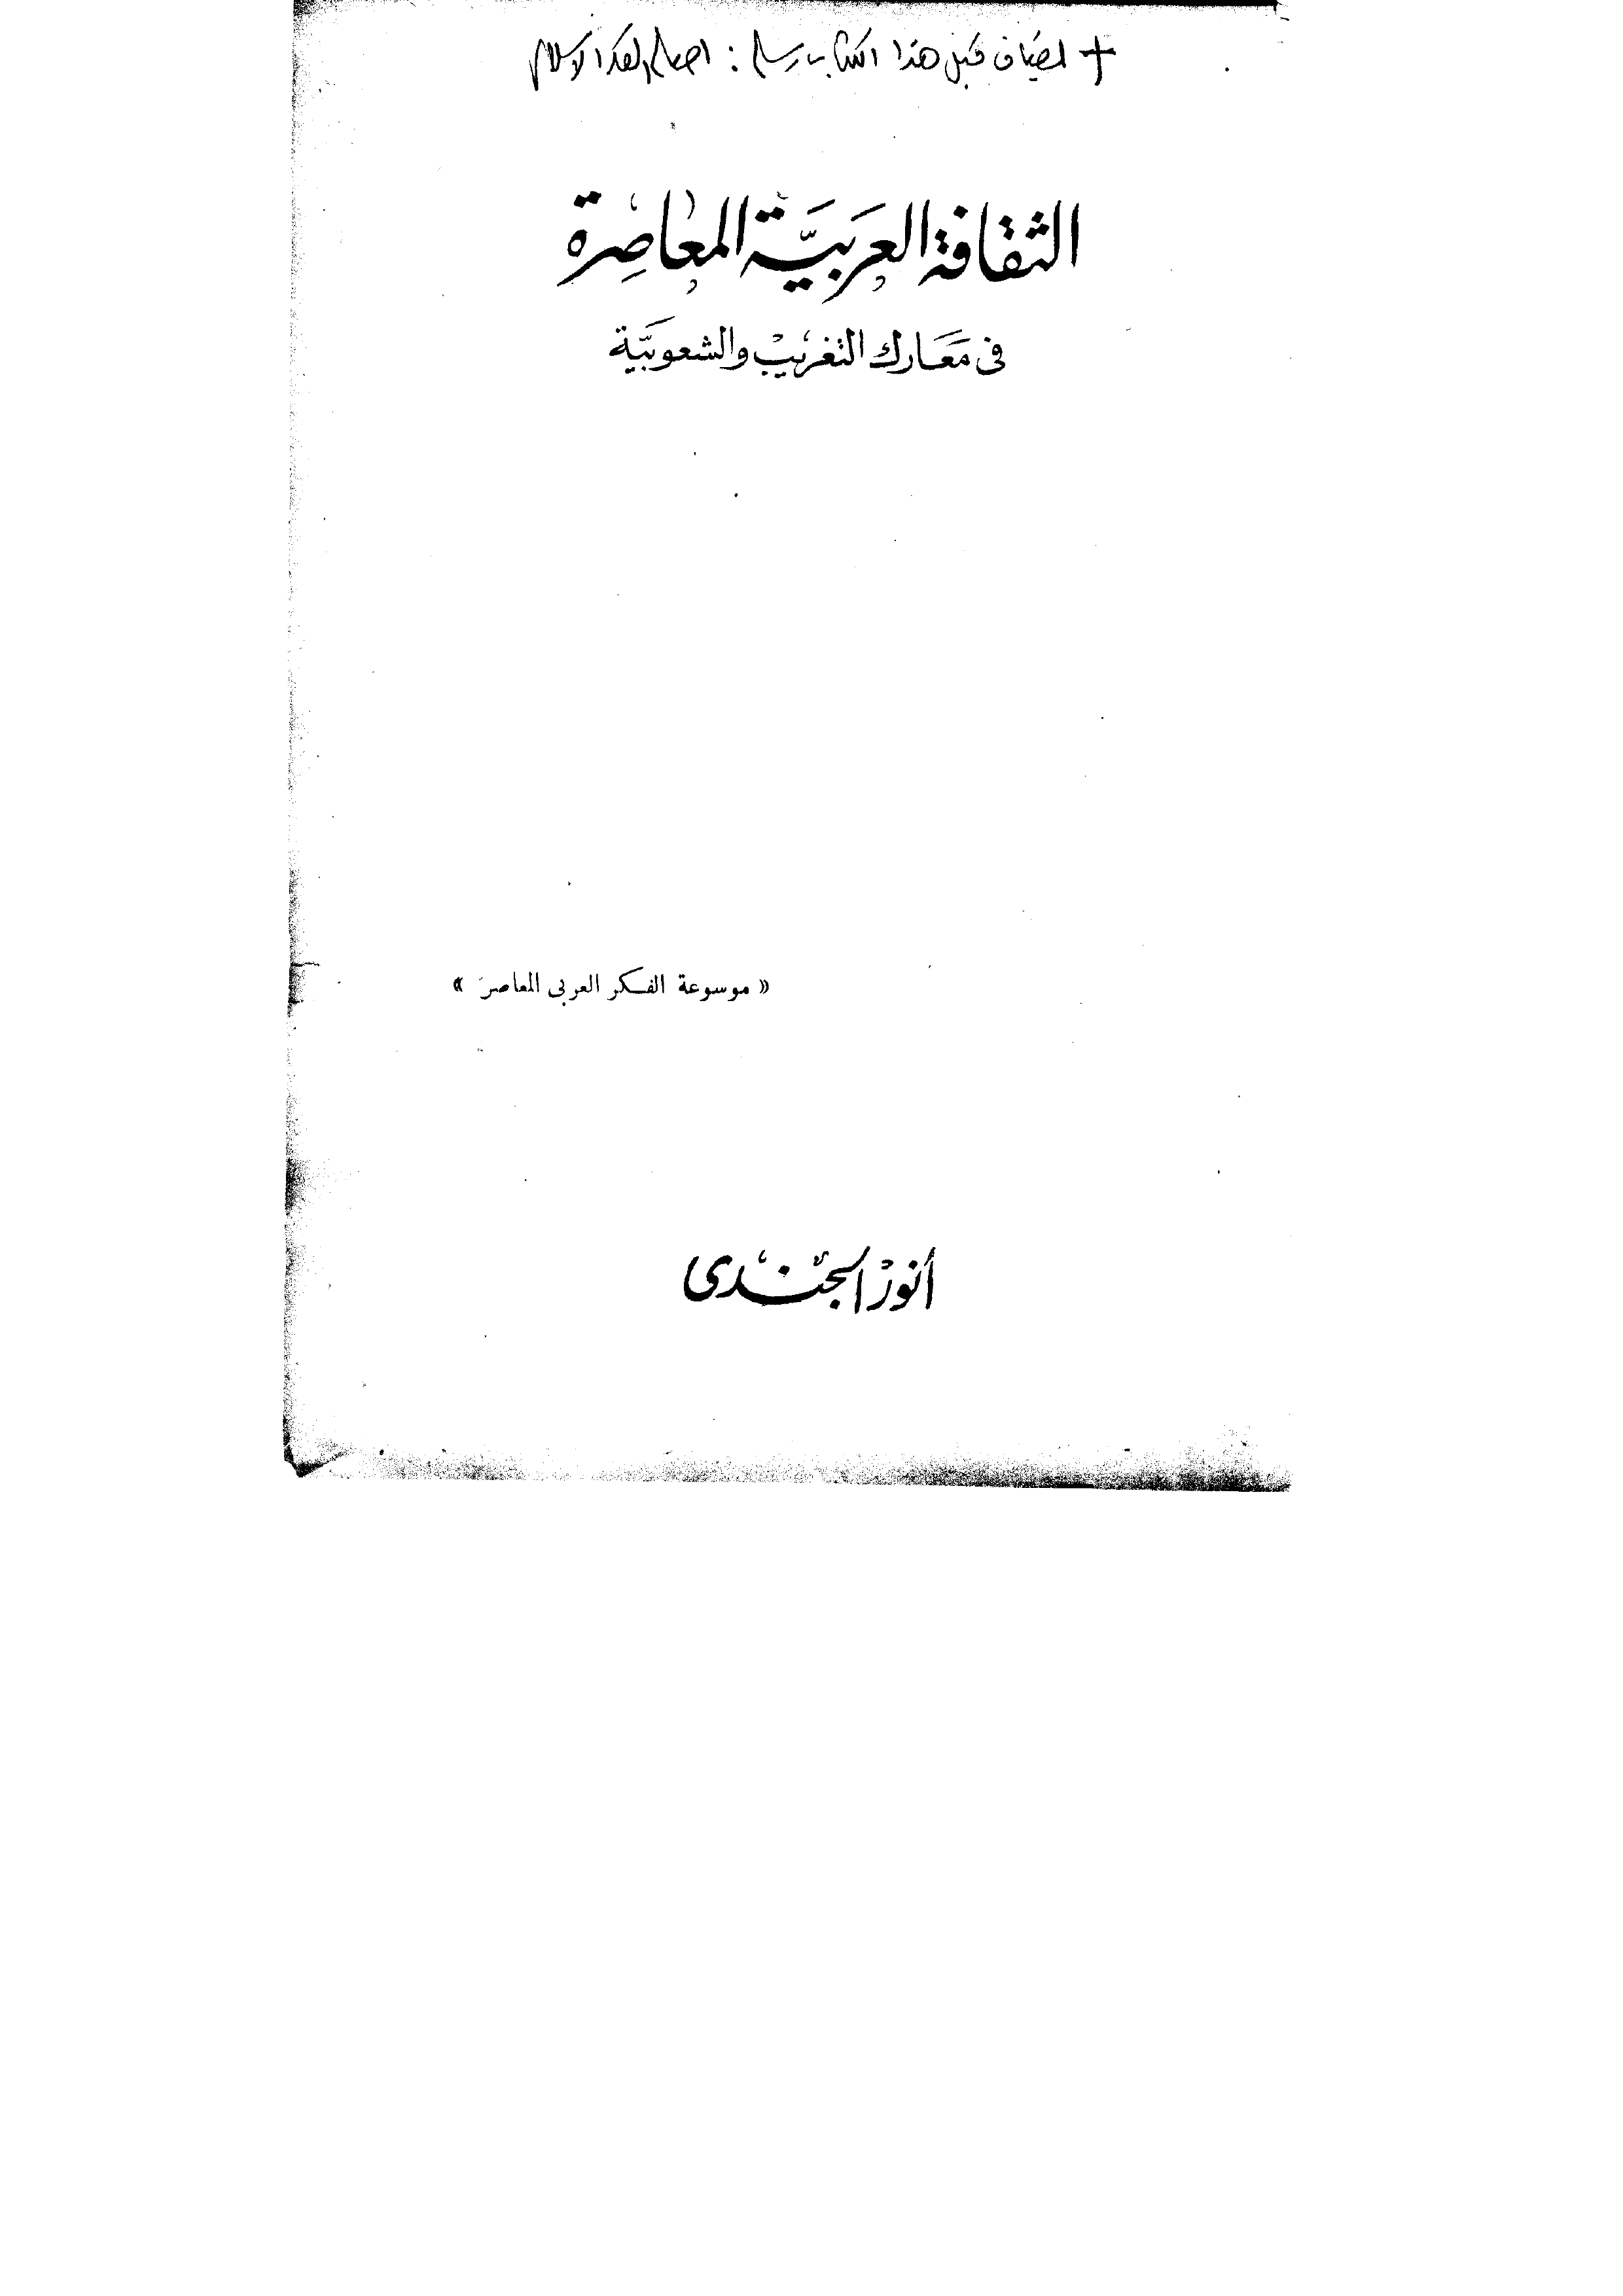 + لضياف قبل هذا الكتاب رسالة : الفكر الإسلامي
الثقافة العربية المعاصرة
فى معارك التغريب والشعوبية
« موسوعة الفكر العربى المعاصر »
أنور الجندى